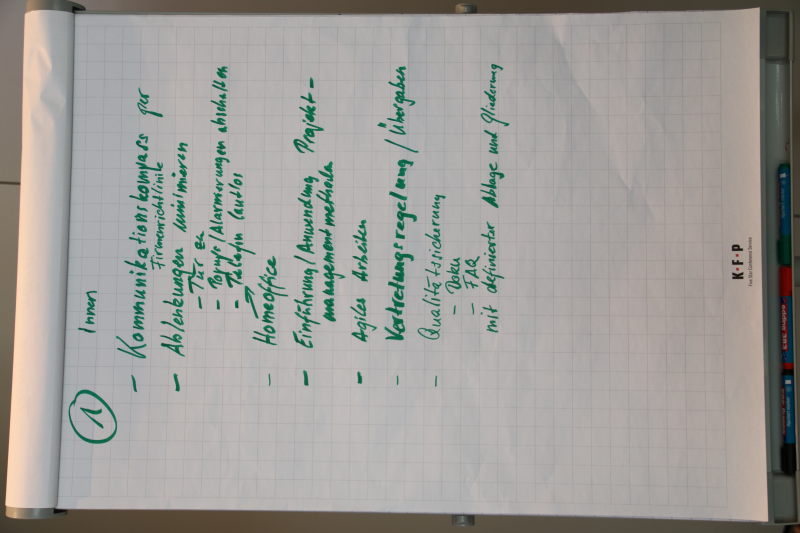 1 Innen
- Kommunikationskompass zur
Firmenrichtlinie
- Ablenkungen minimieren
- Tür zu
- Popups/Alarmierungen abschalten
- Telefon lautlos
- Homeoffice
- Einführung/Anwendung Projekt-
managementmethoden
- Agiles Arbeiten
- Vertretungsregelung/Übergaben
- Qualitätssicherung
- Doku
- FAQ
mit definierter Ablage und Gliederung
K·F·P
Five Star Conference Service